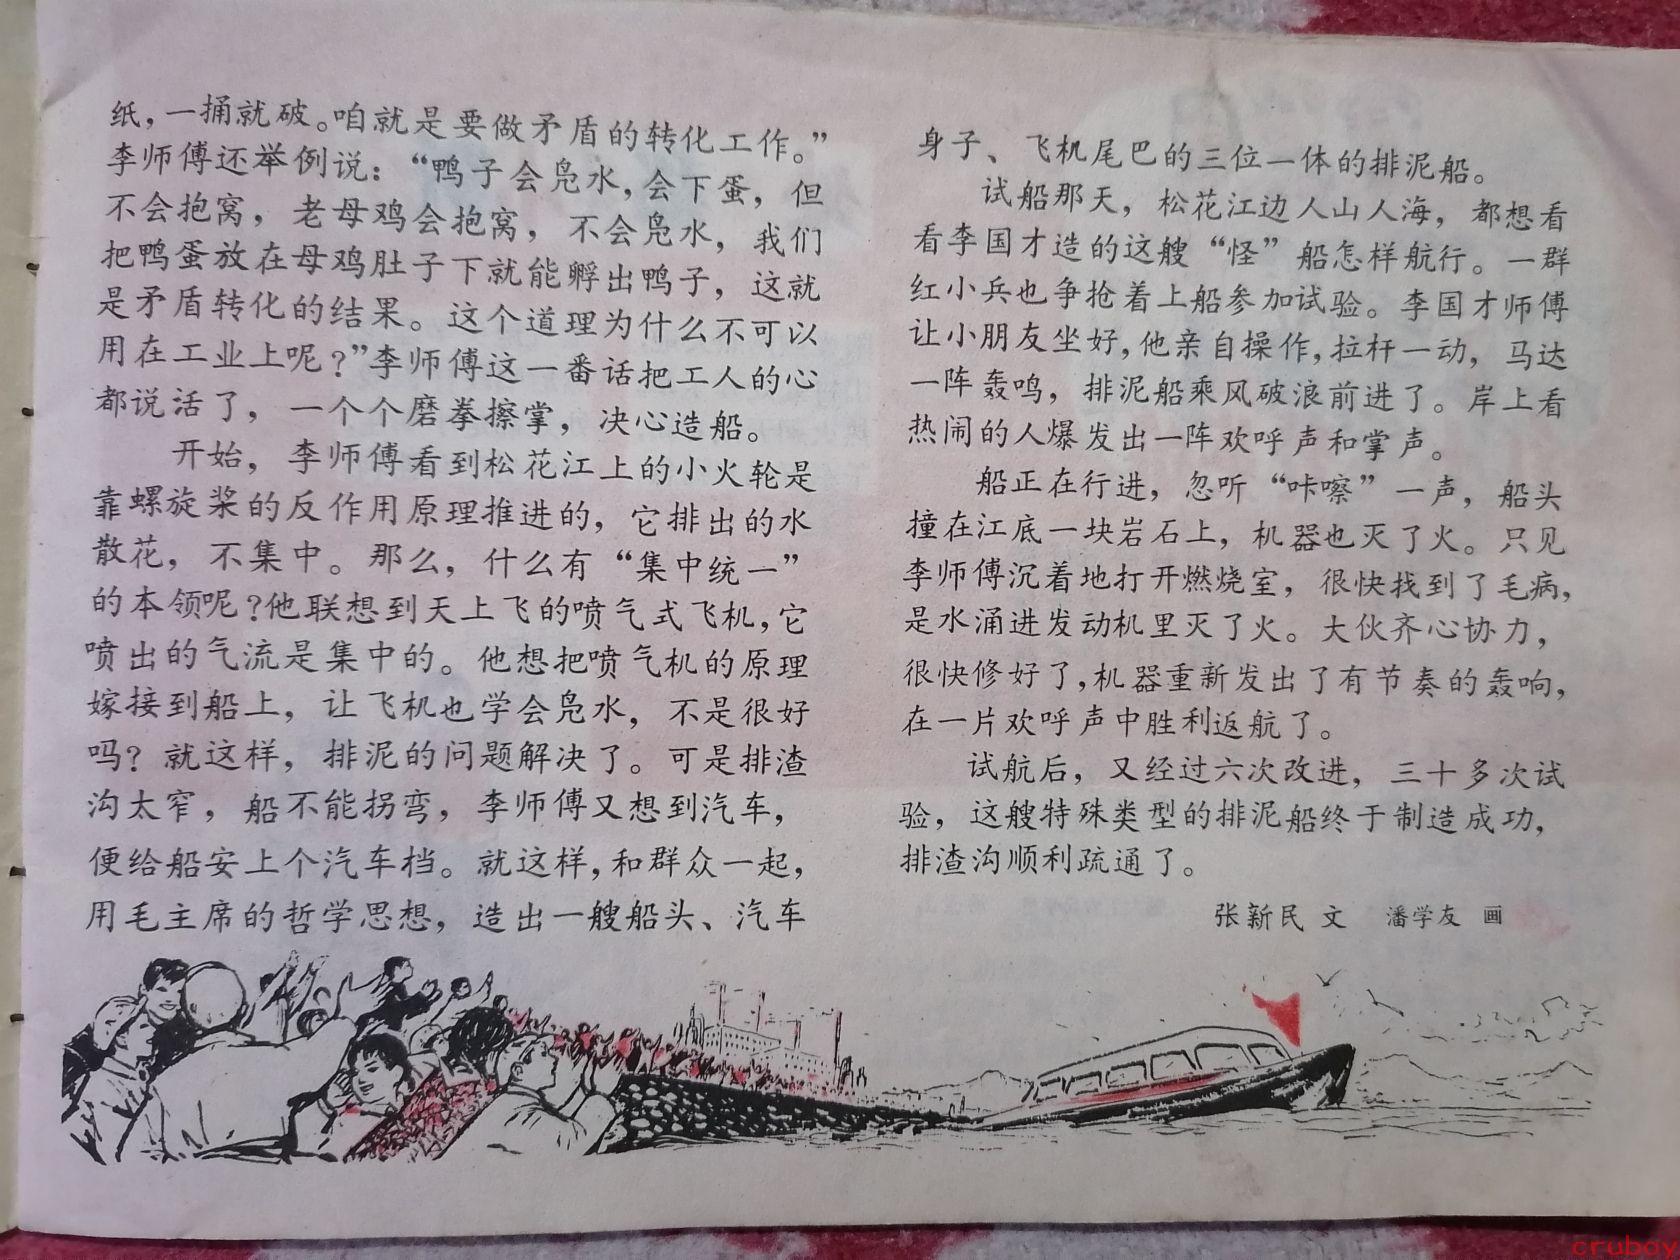 纸，一捅就破。咱就是要做矛盾的转化工作。”
李师傅还举例说：“鸭子会凫水，会下蛋，但
不会抱窝，老母鸡会抱窝，不会凫水，我们
把鸭蛋放在母鸡肚子下就能孵出鸭子，这就
是矛盾转化的结果。这个道理为什么不可以
用在工业上呢？”李师傅这一番话把工人的心
都说活了，一个个磨拳擦掌，决心造船。
开始，李师傅看到松花江上的小火轮是
靠螺旋桨的反作用原理推进的，它排出的水
散花，不集中。那么，什么有“集中统一”
的本领呢？他联想到天上飞的喷气式飞机，它
喷出的气流是集中的。他想把喷气机的原理
嫁接到船上，让飞机也学会凫水，不是很好
吗？就这样，排泥的问题解决了。可是排渣
沟太窄，船不能拐弯，李师傅又想到汽车，
便给船安上个汽车档。就这样，和群众一起，
用毛主席的哲学思想，造出一艘船头、汽车
身子、飞机尾巴的三位一体的排泥船。
试船那天，松花江边人山人海，都想看
看李国才造的这艘“怪”船怎样航行。一群
红小兵也争抢着上船参加试验。李国才师傅
让小朋友坐好，他亲自操作，拉杆一动，马达
一阵轰鸣，排泥船乘风破浪前进了。岸上看
热闹的人爆发出一阵欢呼声和掌声。
船正在行进，忽听“咔嚓”一声，船头
撞在江底一块岩石上，机器也灭了火。只见
李师傅沉着地打开燃烧室，很快找到了毛病，
是水涌进发动机里灭了火。大伙齐心协力，
很快修好了，机器重新发出了有节奏的轰响，
在一片欢呼声中胜利返航了。
试航后，又经过六次改进，三十多次试
验，这艘特殊类型的排泥船终于制造成功，
排渣沟顺利疏通了。
张新民 文 潘学友 画
crubay